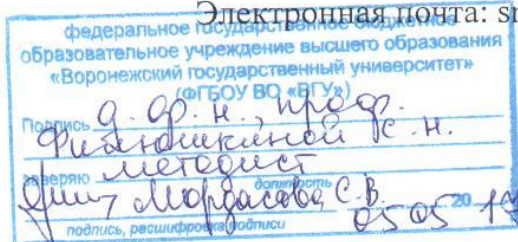 Электронная почта:
федеральное государственное бюджетное
образовательное учреждение высшего образования
«Воронежский государственный университет»
(ФГБОУ ВО «ВГУ»)
Подпись д. ф. н., проф.
С. Н.
заверяю методист
должность
Мордасова С. В. 05 05 20 19
подпись, расшифровка подписи